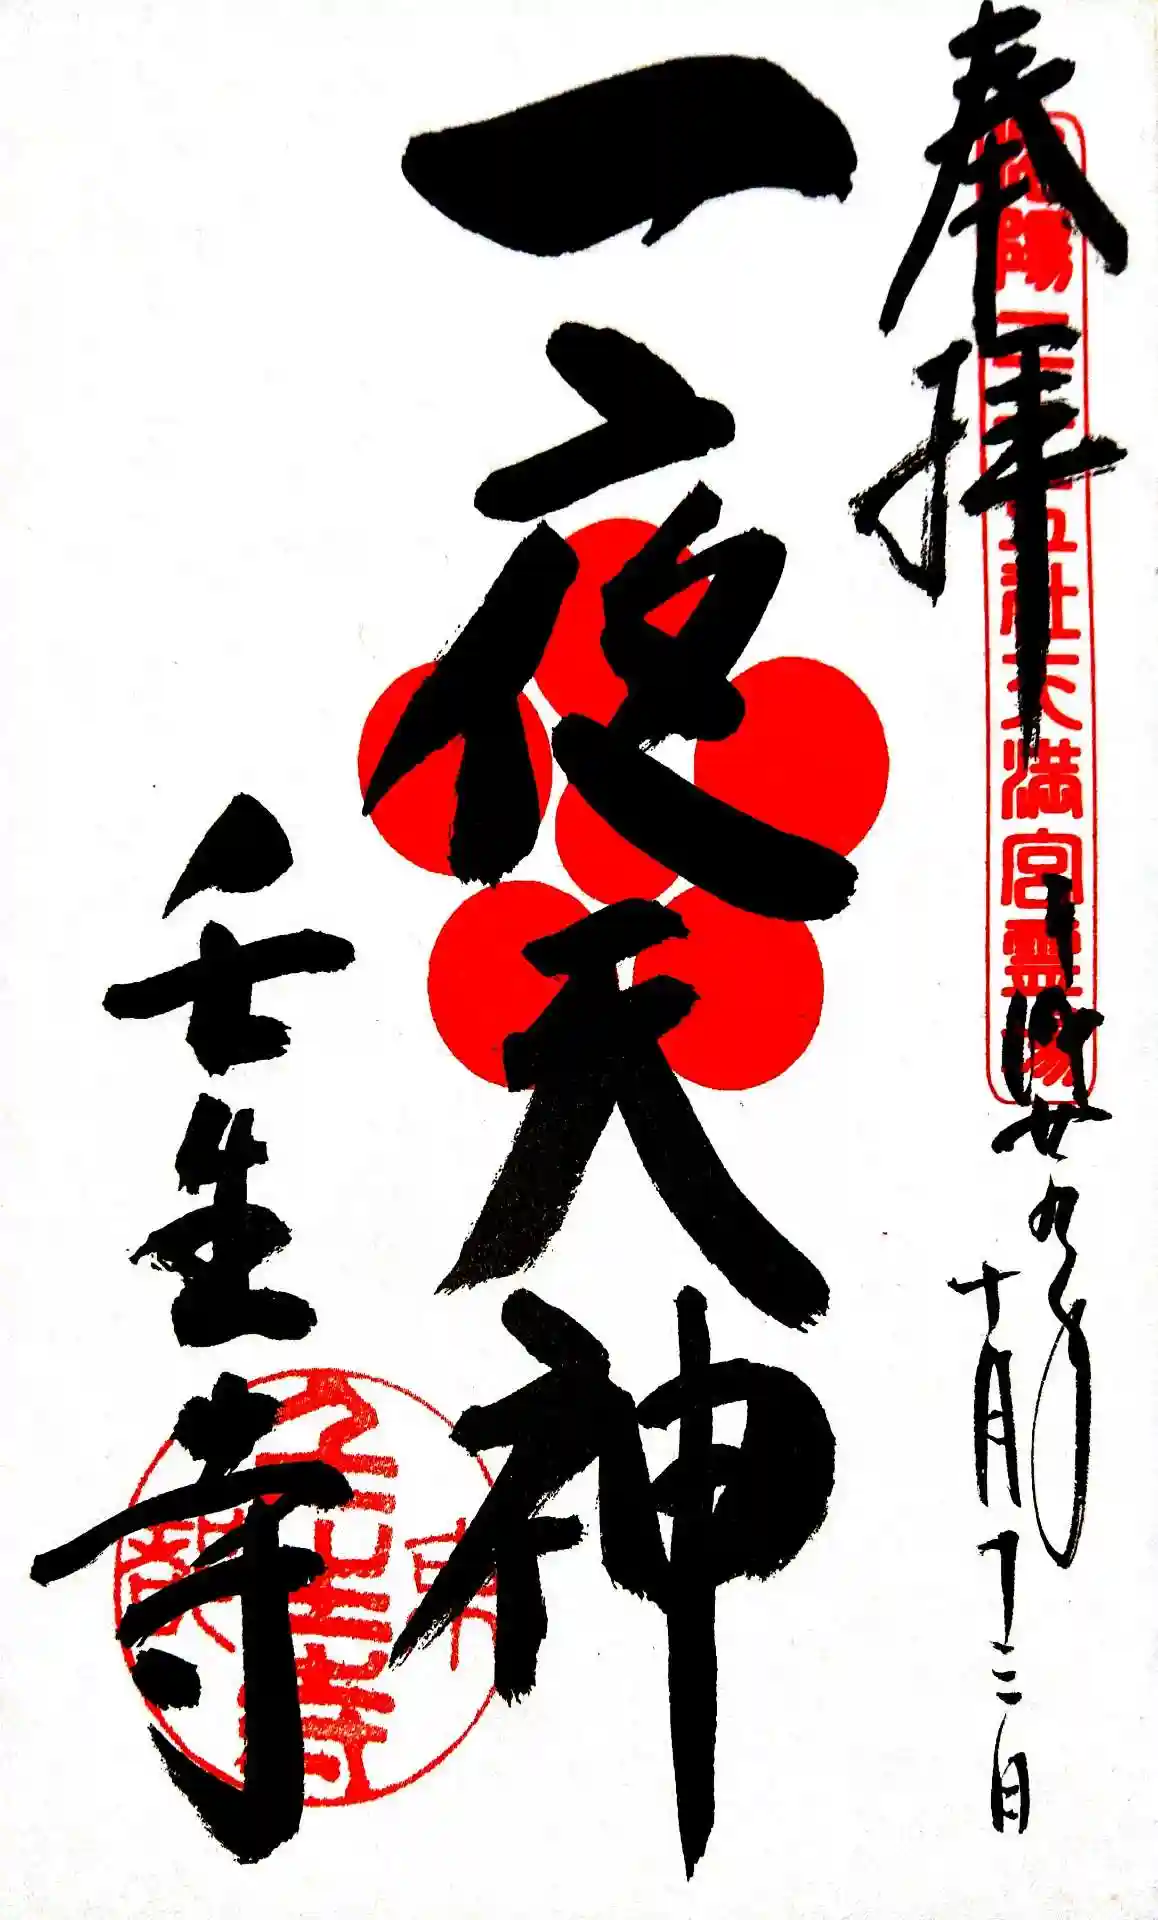 奉拝
洛陽二十五社天満宮霊場
平成廿九年
十月十二日
一夜天神
壬生寺